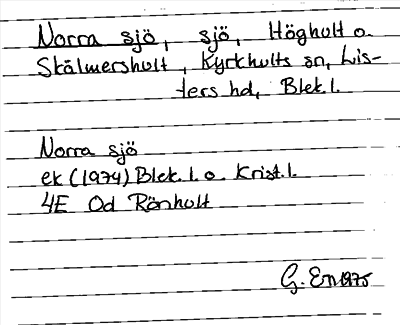 Norra sjö, sjö, Höghult o.
Skälmershult, Kyrkhults sn, Lis-
ters hd, Blek. l.
Norra sjö
ek (1974) Blek. l. o. Krist. l.
4E Od Rönhult
G. En 1975